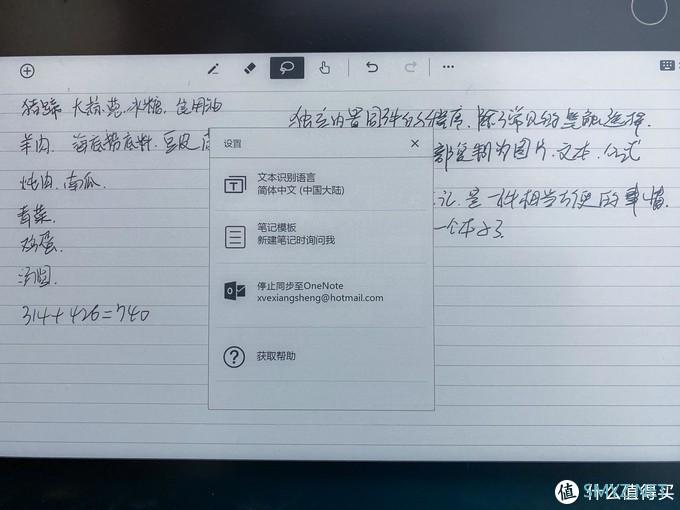 猪蹄 大蒜 葱 冰糖 食用油
羊肉. 海底捞底料. 豆皮
炖肉. 南瓜.
青菜.
鸡蛋.
汤圆.
314+426=740
独立内置同件的分程序. 除了常见的
部复制为图片. 文本. 公式
记. 是一件相当方便的事情.
一个本子了.
设置
文本识别语言
简体中文 (中国大陆)
笔记模板
新建笔记时询问我
停止同步至OneNote
xvexiangsheng@hotmail.com
获取帮助
值 什么值得买
SMYZ.NET